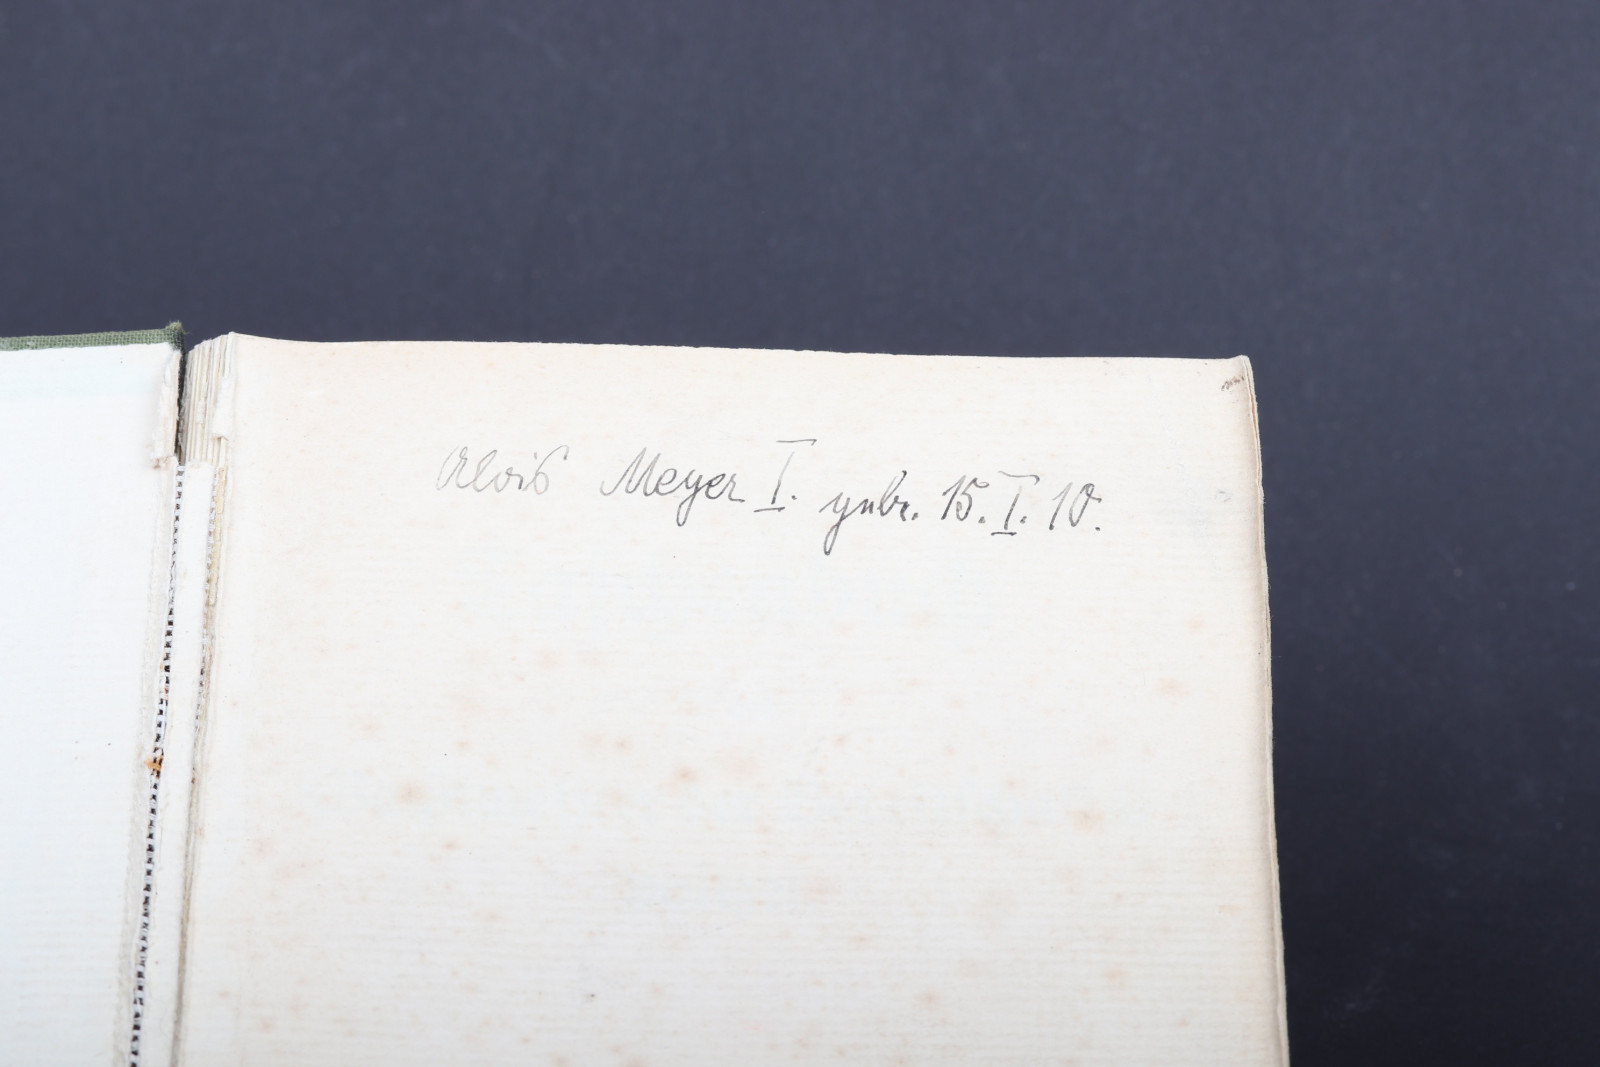 Alois Meyer I. gebr. 15. I. 10.